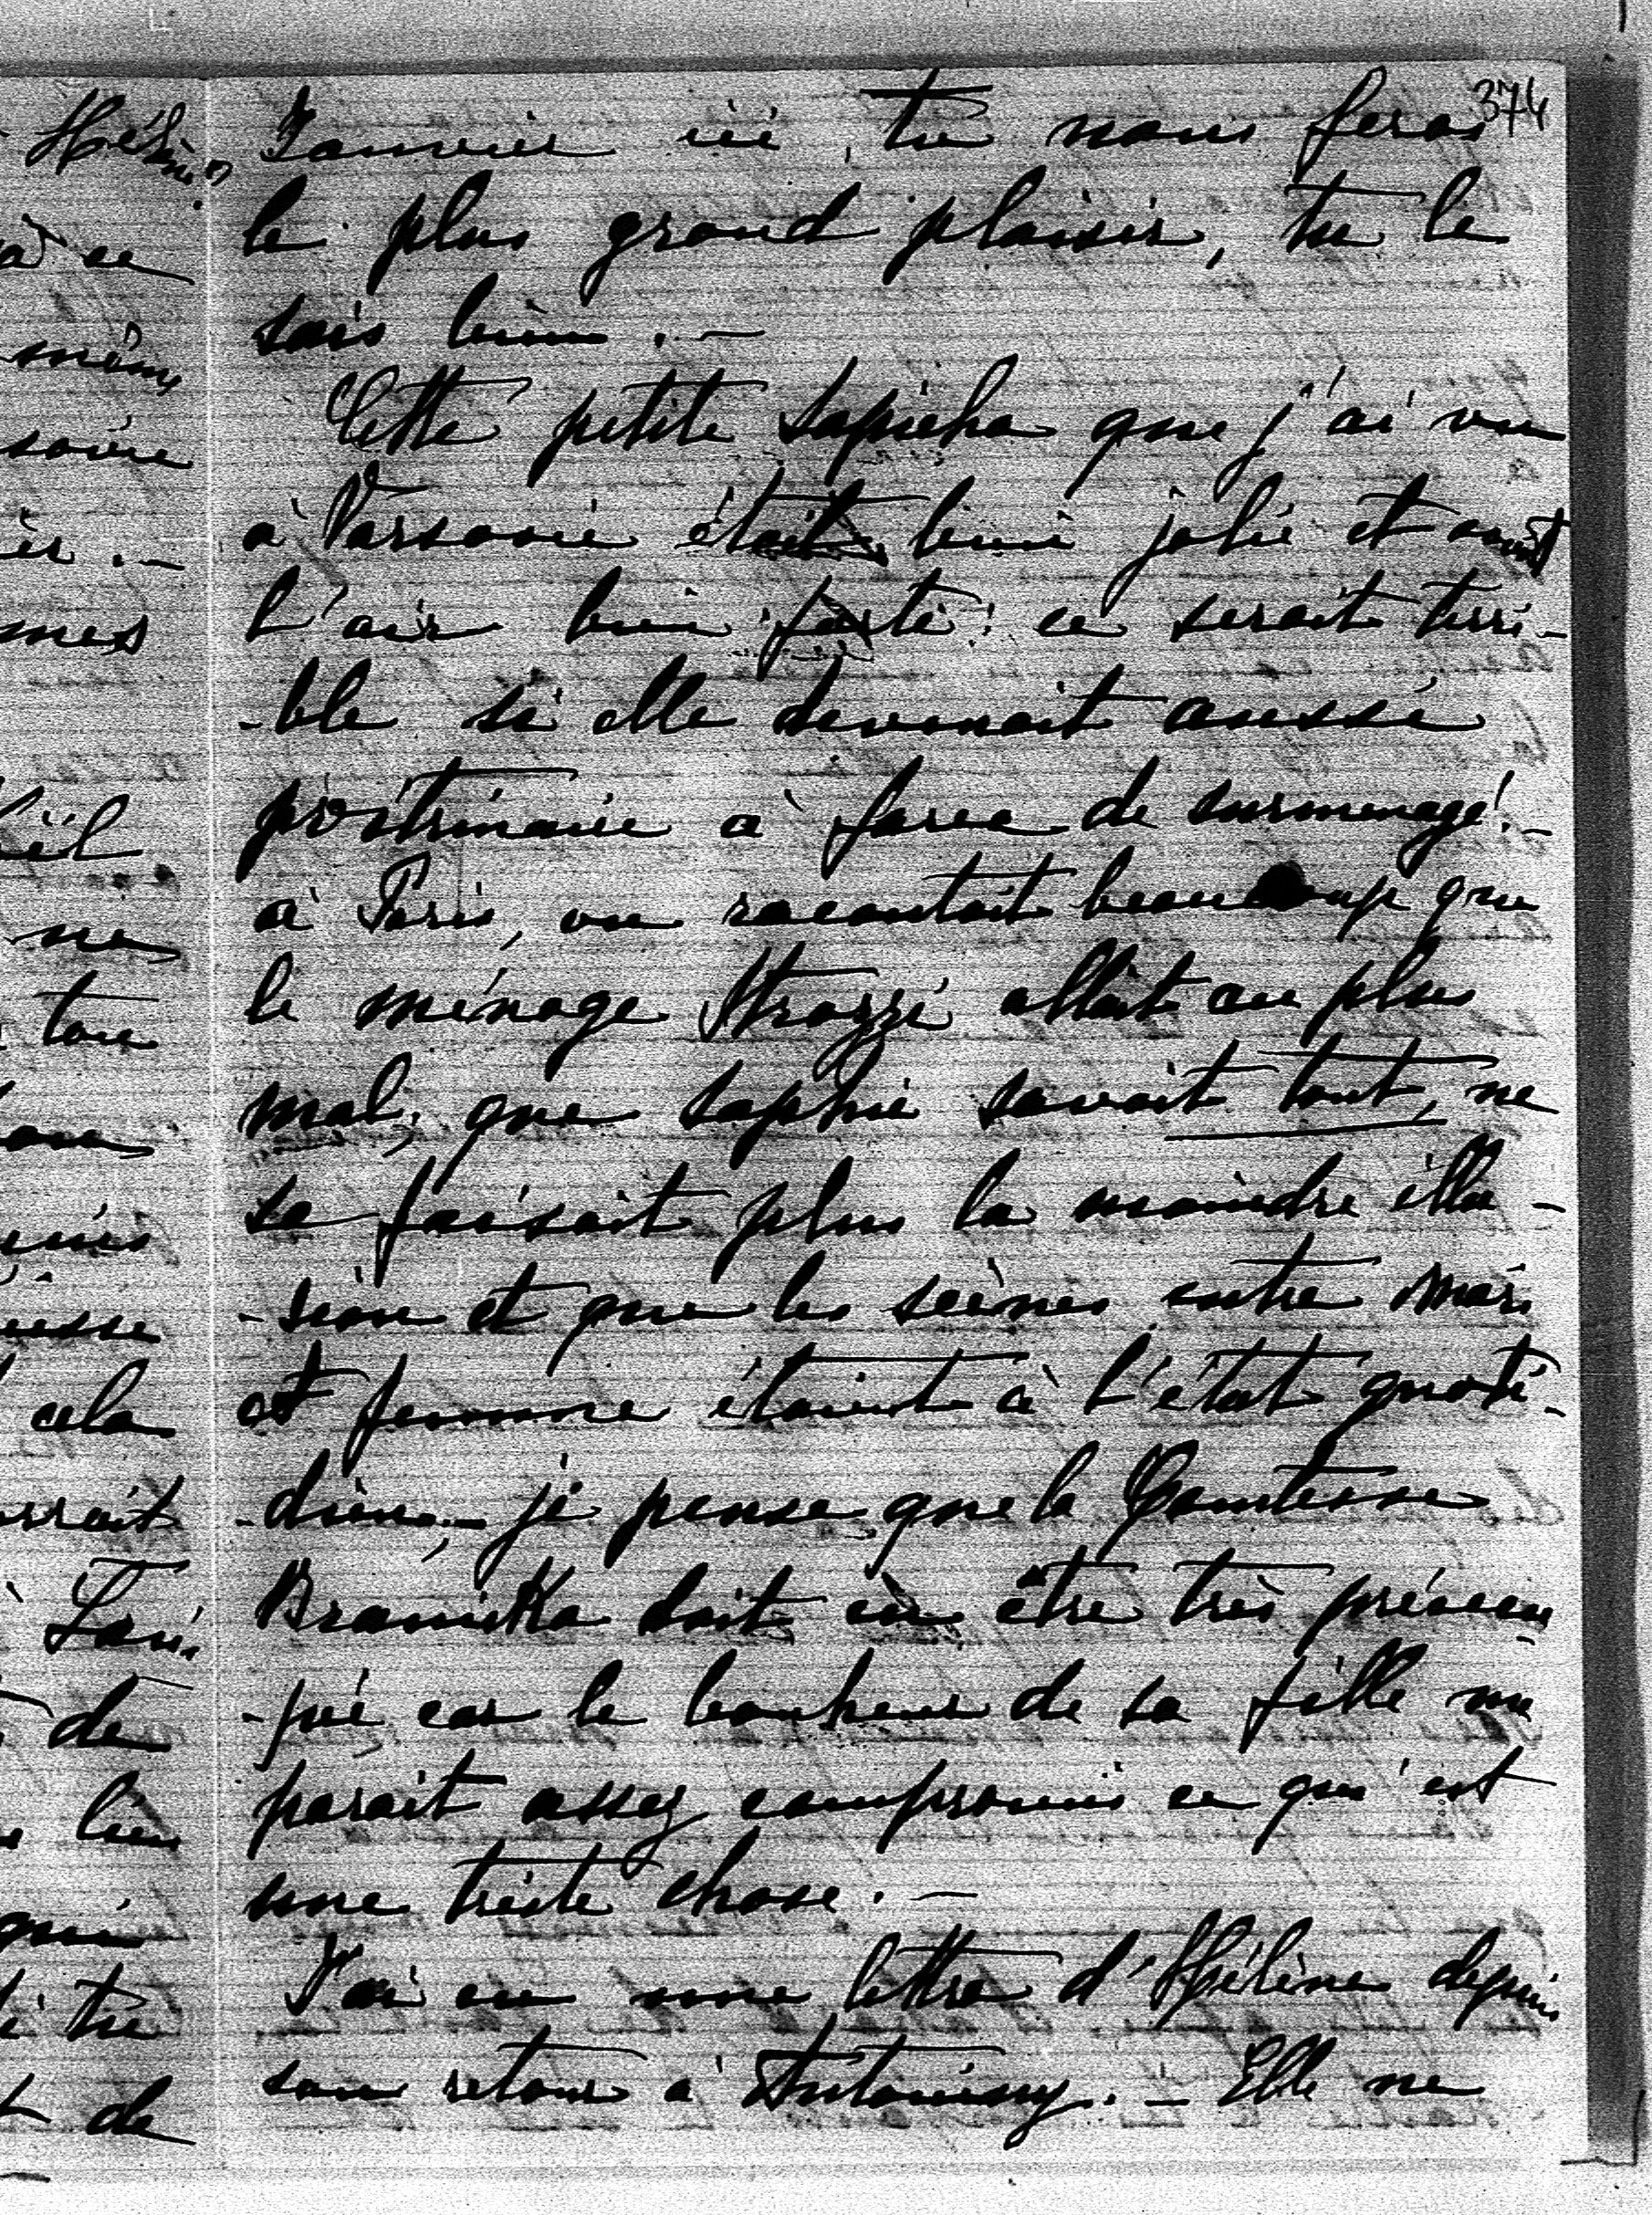 374
Janvier ici, tu nous feras
le plus grand plaisir, tu le
sais bien. —
Cette petite Sapieha que j'ai vue
à Varsovie était bien jolie et avait
l'air bien forte: ce serait terri-
-ble si elle devenait aussi
poitrinaire à force de surmenage! —
à Paris, on racontait beaucoup que
le ménage Strozzi allait au plus
mal, que Sophie savait tout, ne
se faisait plus la moindre illu-
-sion et que les scènes entre mari
et femme étaient à l'état quoti-
-dien, — je pense que la Comtesse
Branicka doit en être très préoccu
-pée car le bonheur de sa fille me
parait assez compromis ce qui est
une triste chose. —
J'ai eu une lettre d'Hélène depuis
son retour à Antoniny. — Elle ne